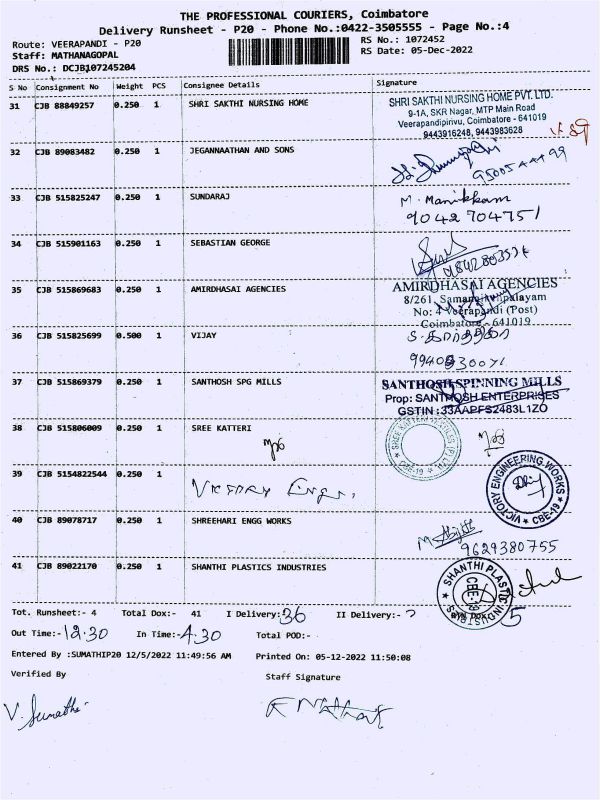 THE PROFESSIONAL COURIERS, Coimbatore
Delivery Runsheet - P20 - Phone No.:0422-3505555 - Page No.:4
Route: VEERAPANDI - P20
RS No.: 1072452
Staff: MATHANAGOPAL
RS Date: 05-Dec-2022
DRS No.: DCJB107245204
S No Consignment No Weight PCS Consignee Details Signature
31 CJB 88849257 0.250 1 SHRI SAKTHI NURSING HOME
SHRI SAKTHI NURSING HOME PVT. LTD.
9-1A, SKR Nagar, MTP Main Road
Veerapandipirivu, Coimbatore - 641019
9443916248, 9443983628
32 CJB 89083482 0.250 1 JEGANNAATHAN AND SONS
33 CJB 515825247 0.250 1 SUNDARAJ
M. Manikkam
9042704751
34 CJB 515901163 0.250 1 SEBASTIAN GEORGE
35 CJB 515869683 0.250 1 AMIRDHASAI AGENCIES
AMIRDHASAI AGENCIES
8/261, Samanaickenpalayam
No: 4 Veerapandi (Post)
Coimbatore - 641019
36 CJB 515825699 0.500 1 VIJAY
37 CJB 515869379 0.250 1 SANTHOSH SPG MILLS
SANTHOSH SPINNING MILLS
Prop: SANTHOSH ENTERPRISES
GSTIN :33AAPFS2483L1ZO
38 CJB 515806009 0.250 1 SREE KATTERI
SREE KATTERI
CBE-19
39 CJB 5154822544 0.250 1
Victory Engg.,
VICTORY ENGINEERING WORKS
CBE-19
40 CJB 89078717 0.250 1 SHREEHARI ENGG WORKS
9629380755
41 CJB 89022170 0.250 1 SHANTHI PLASTICS INDUSTRIES
SHANTHI PLASTIC INDUSTRIES
CBE
Tot. Runsheet:- 4 Total Dox:- 41 I Delivery:36 II Delivery:- RTN Dox:- 5
Out Time:-12.30 In Time:-4.30 Total POD:-
Entered By :SUMATHIP20 12/5/2022 11:49:56 AM Printed On: 05-12-2022 11:50:08
Verified By Staff Signature
V. Sumathi